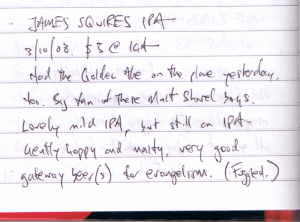 - JAMES SQUIRES IPA -
3/10/08. $8 @ IGA -
Had the Golden Ale on the plane yesterday,
too. Big fan of these Malt Shovel boys.
Lovely mild IPA, but still an IPA -
Gently hoppy and malty, very good
gateway beer(s) for evangelism. (Fuggled.)